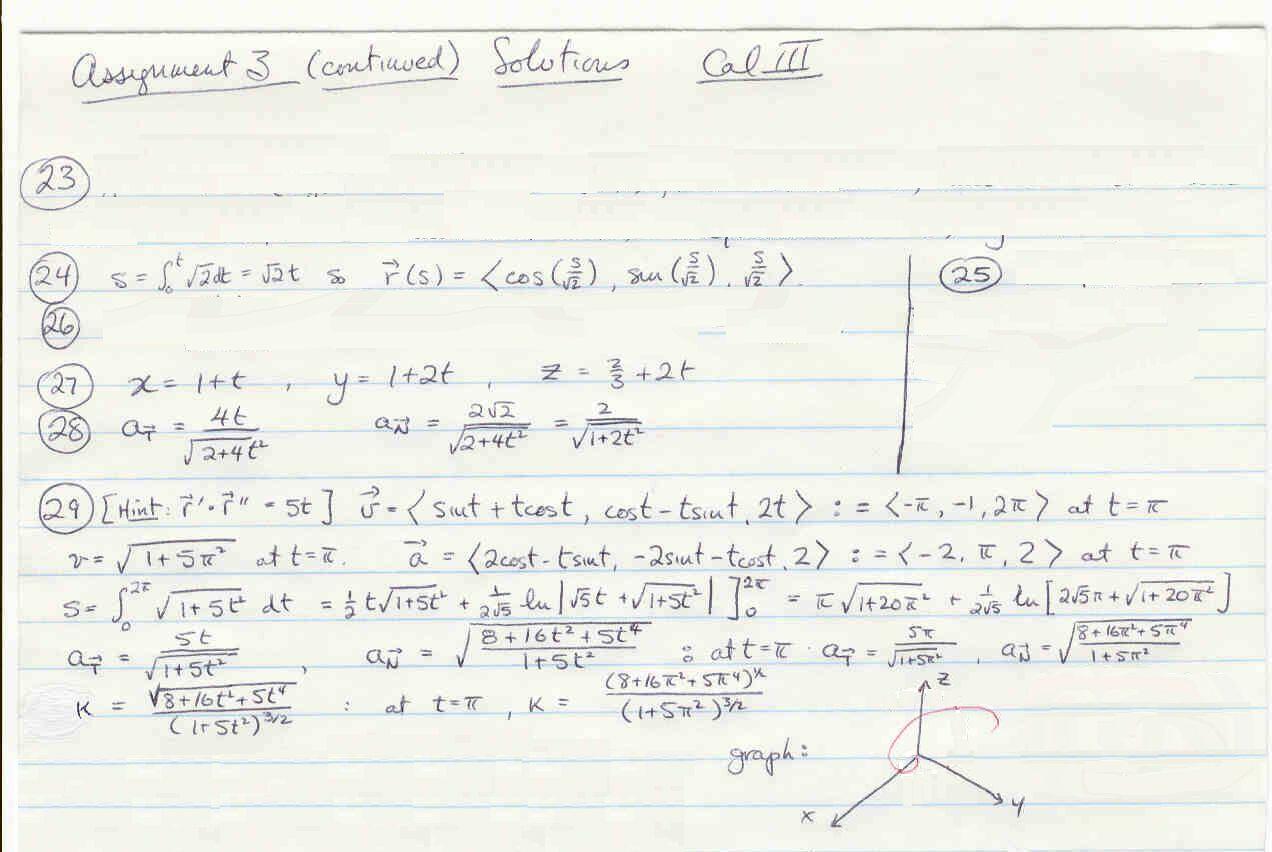 Assignment 3 (continued) Solutions Cal III
23
24 s = ∫₀ᵗ √2 dt = √2 t so r⃗(s) = ⟨cos(s/√2), sin(s/√2), s/√2⟩.
25
26
27 x = 1+t , y = 1+2t , z = 2/3 + 2t
28 a_T⃗ = 4t/√(2+4t²) a_N⃗ = 2√2/√(2+4t²) = 2/√(1+2t²)
29 [Hint: r⃗′·r⃗″ = 5t] v⃗ = ⟨sint + tcost, cost − tsint, 2t⟩ : = ⟨−π, −1, 2π⟩ at t = π
v = √(1+5π²) at t=π. a⃗ = ⟨2cost − tsint, −2sint − tcost, 2⟩ : = ⟨−2, π, 2⟩ at t = π
s = ∫₀^2π √(1+5t²) dt = ½ t√(1+5t²) + 1/(2√5) ln|√5t + √(1+5t²)| ]₀^2π = π√(1+20π²) + 1/(2√5) ln[2√5π + √(1+20π²)]
a_T⃗ = 5t/√(1+5t²) , a_N⃗ = √((8+16t²+5t⁴)/(1+5t²)) : at t=π · a_T⃗ = 5π/√(1+5π²) , a_N⃗ = √((8+16π²+5π⁴)/(1+5π²))
κ = √(8+16t²+5t⁴)/(1+5t²)^3/2 : at t=π , κ = (8+16π²+5π⁴)^½/(1+5π²)^3/2
graph: z
x y